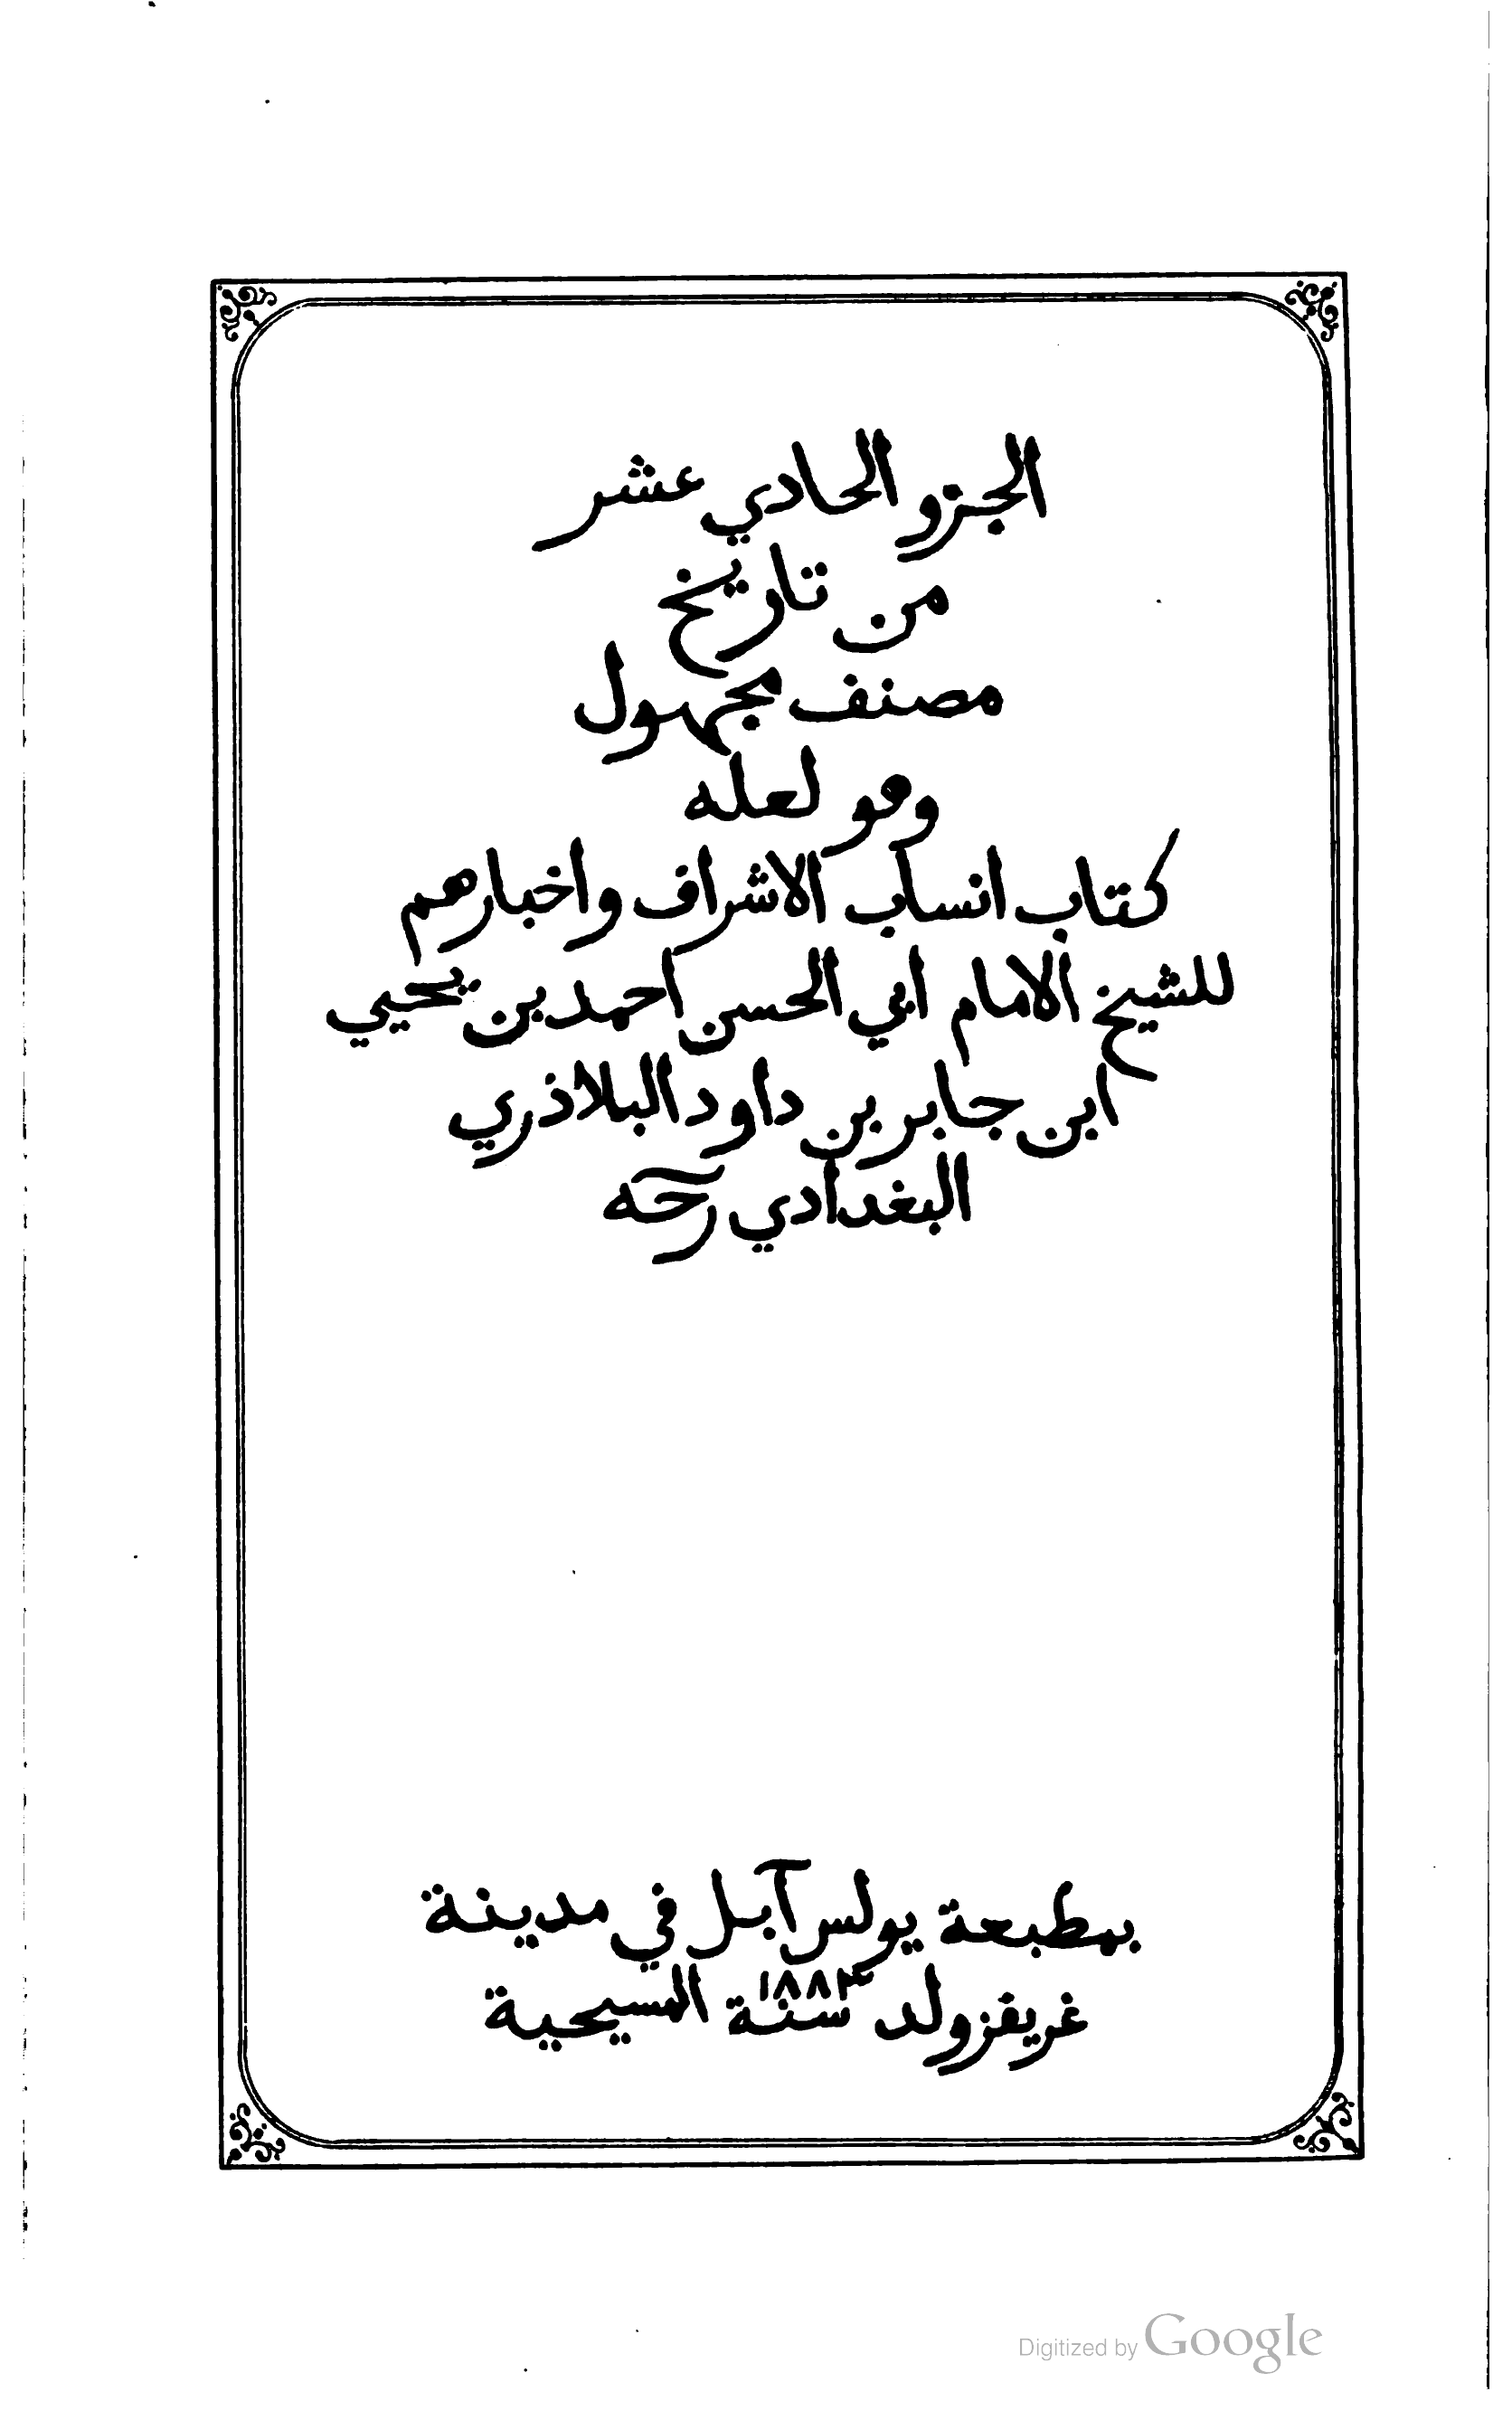 الجزو الحادي عشر
من تاريخ
مصنف مجهول
وهو لعله
كتاب انساب الاشراف واخبارهم
للشيخ الامام ابي الحسن احمد بن يحيي
ابن جابر بن داود البلاذري
البغدادي رحمه
بمطبعة يولس آبل في مدينة
غريفزولد سنة ١٨٨٣ المسيحية
Digitized by Google